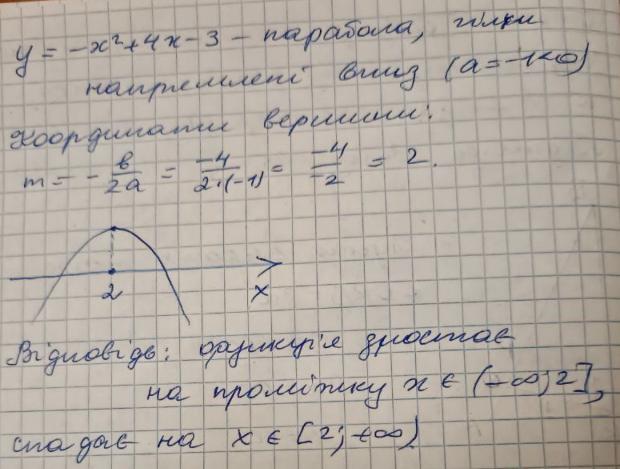 y = -x² + 4x - 3 - парабола, гілки
напрямлені вниз (a = -1 < 0)
Координати вершини:
m = - в/2a = -4/2·(-1) = -4/-2 = 2.
2 x
Відповідь: функція зростає
на проміжку x ∈ (-∞; 2],
спадає на x ∈ [2; +∞)